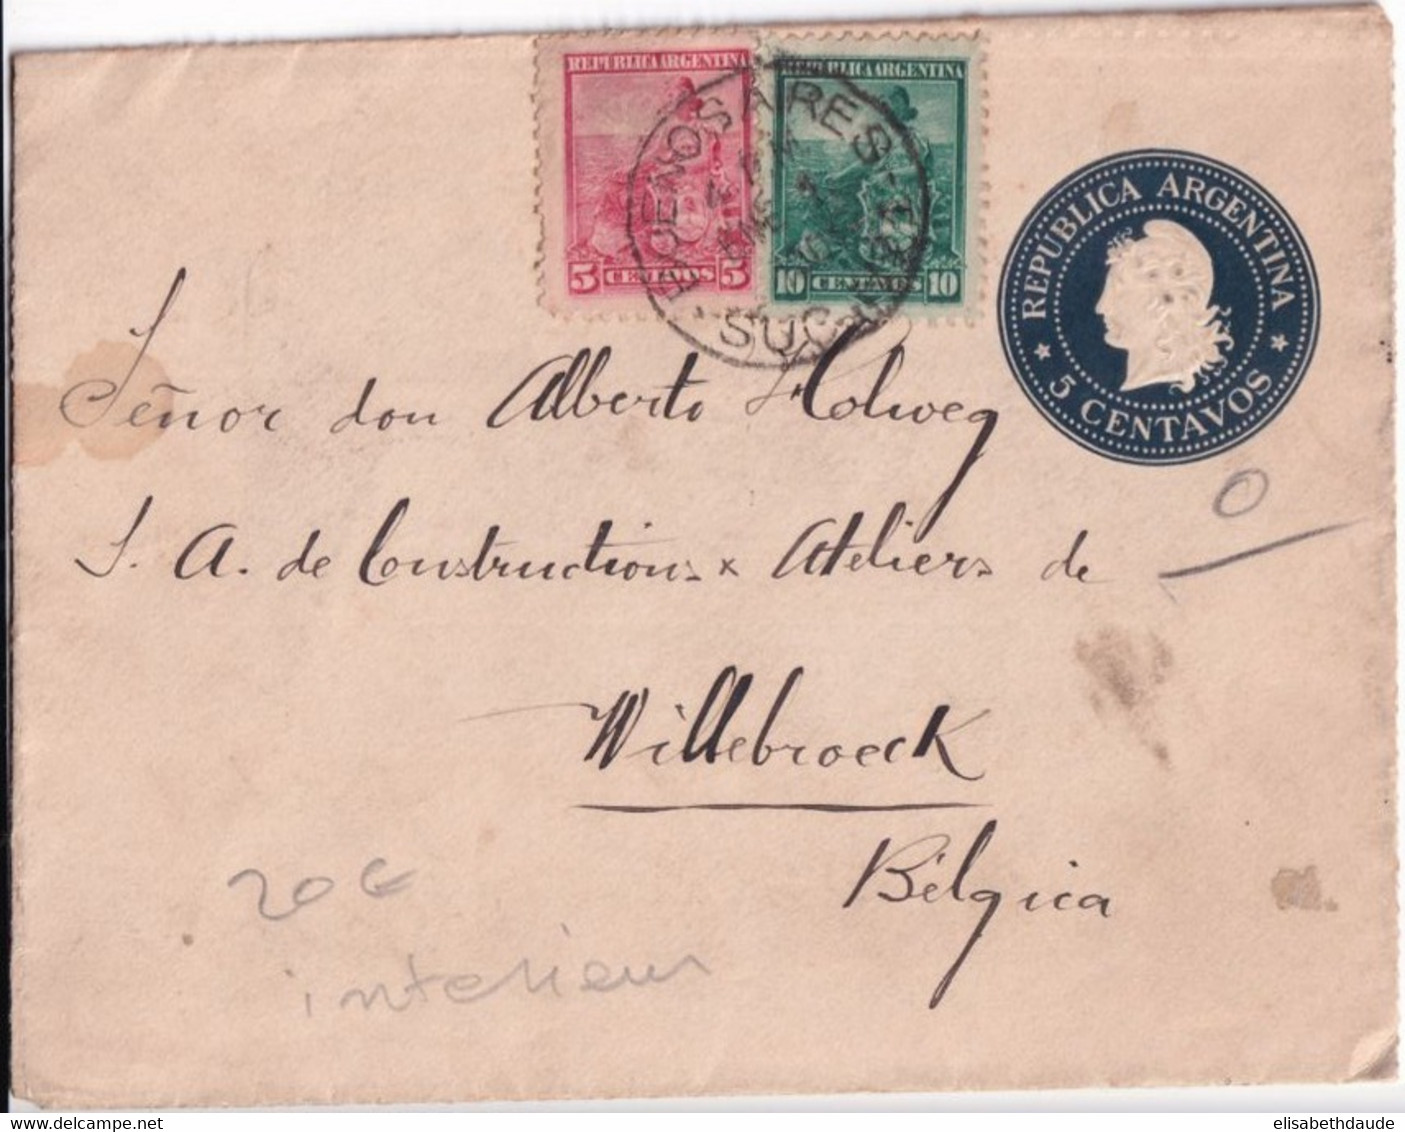 REPUBLICA ARGENTINA
5 CENTAVOS 5
REPUBLICA ARGENTINA
10 CENTAVOS 10
BUENOS AIRES
SUC
REPÚBLICA ARGENTINA
★ 5 CENTAVOS ★
Señor don Alberto Holweg
S. A. de Constructions & Ateliers de
Willebroeck
Bélgica
20€
interieur
elisabethdaude